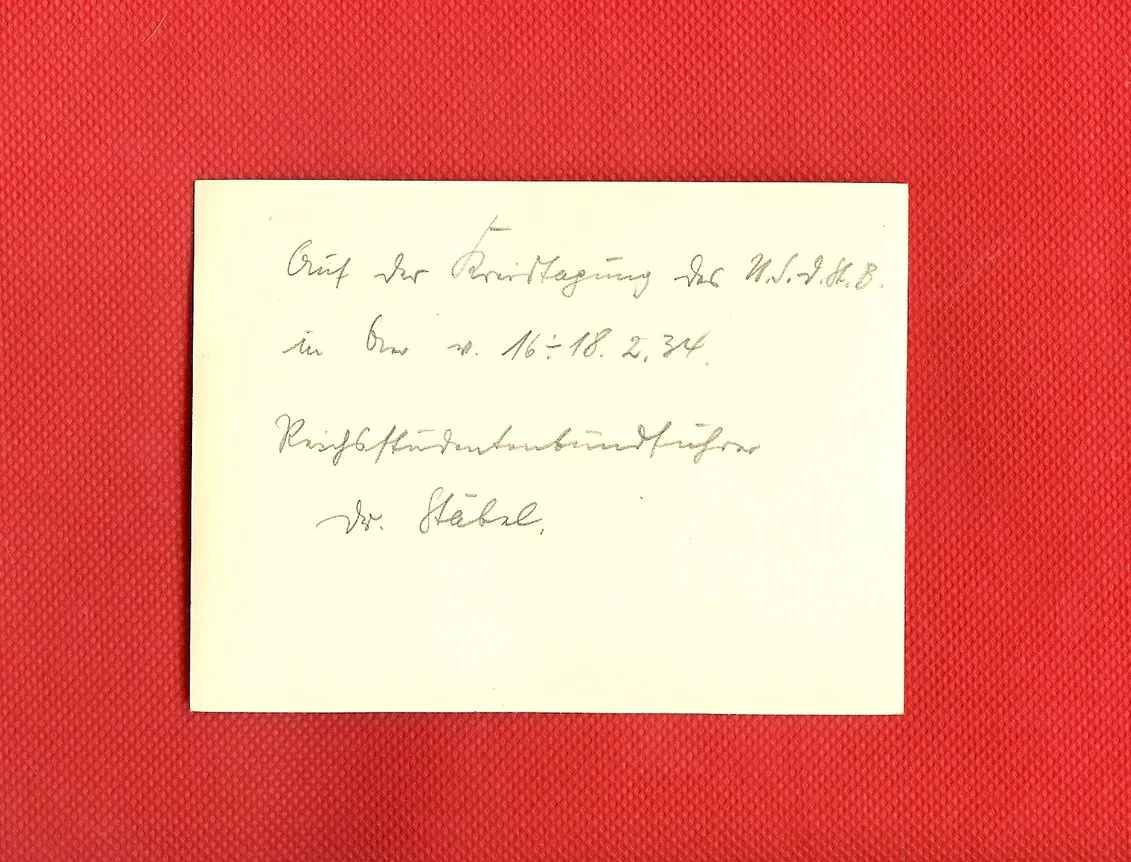 Auf der Kreistagung des N.S.D.St.B.
in v. 16÷18. 2. 34.
Reichsstudentenbundführer
Dr. Stäbel.